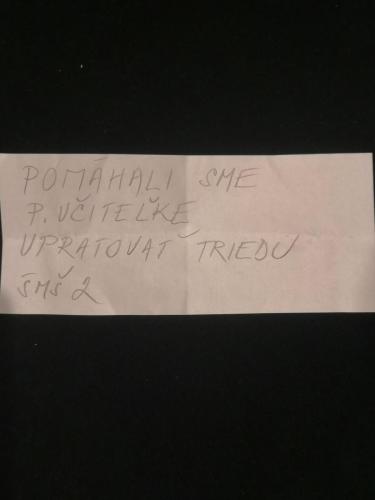 POMÁHALI SME
P. UČITEĽKE
UPRATOVAŤ TRIEDU
ŠMŠ 2